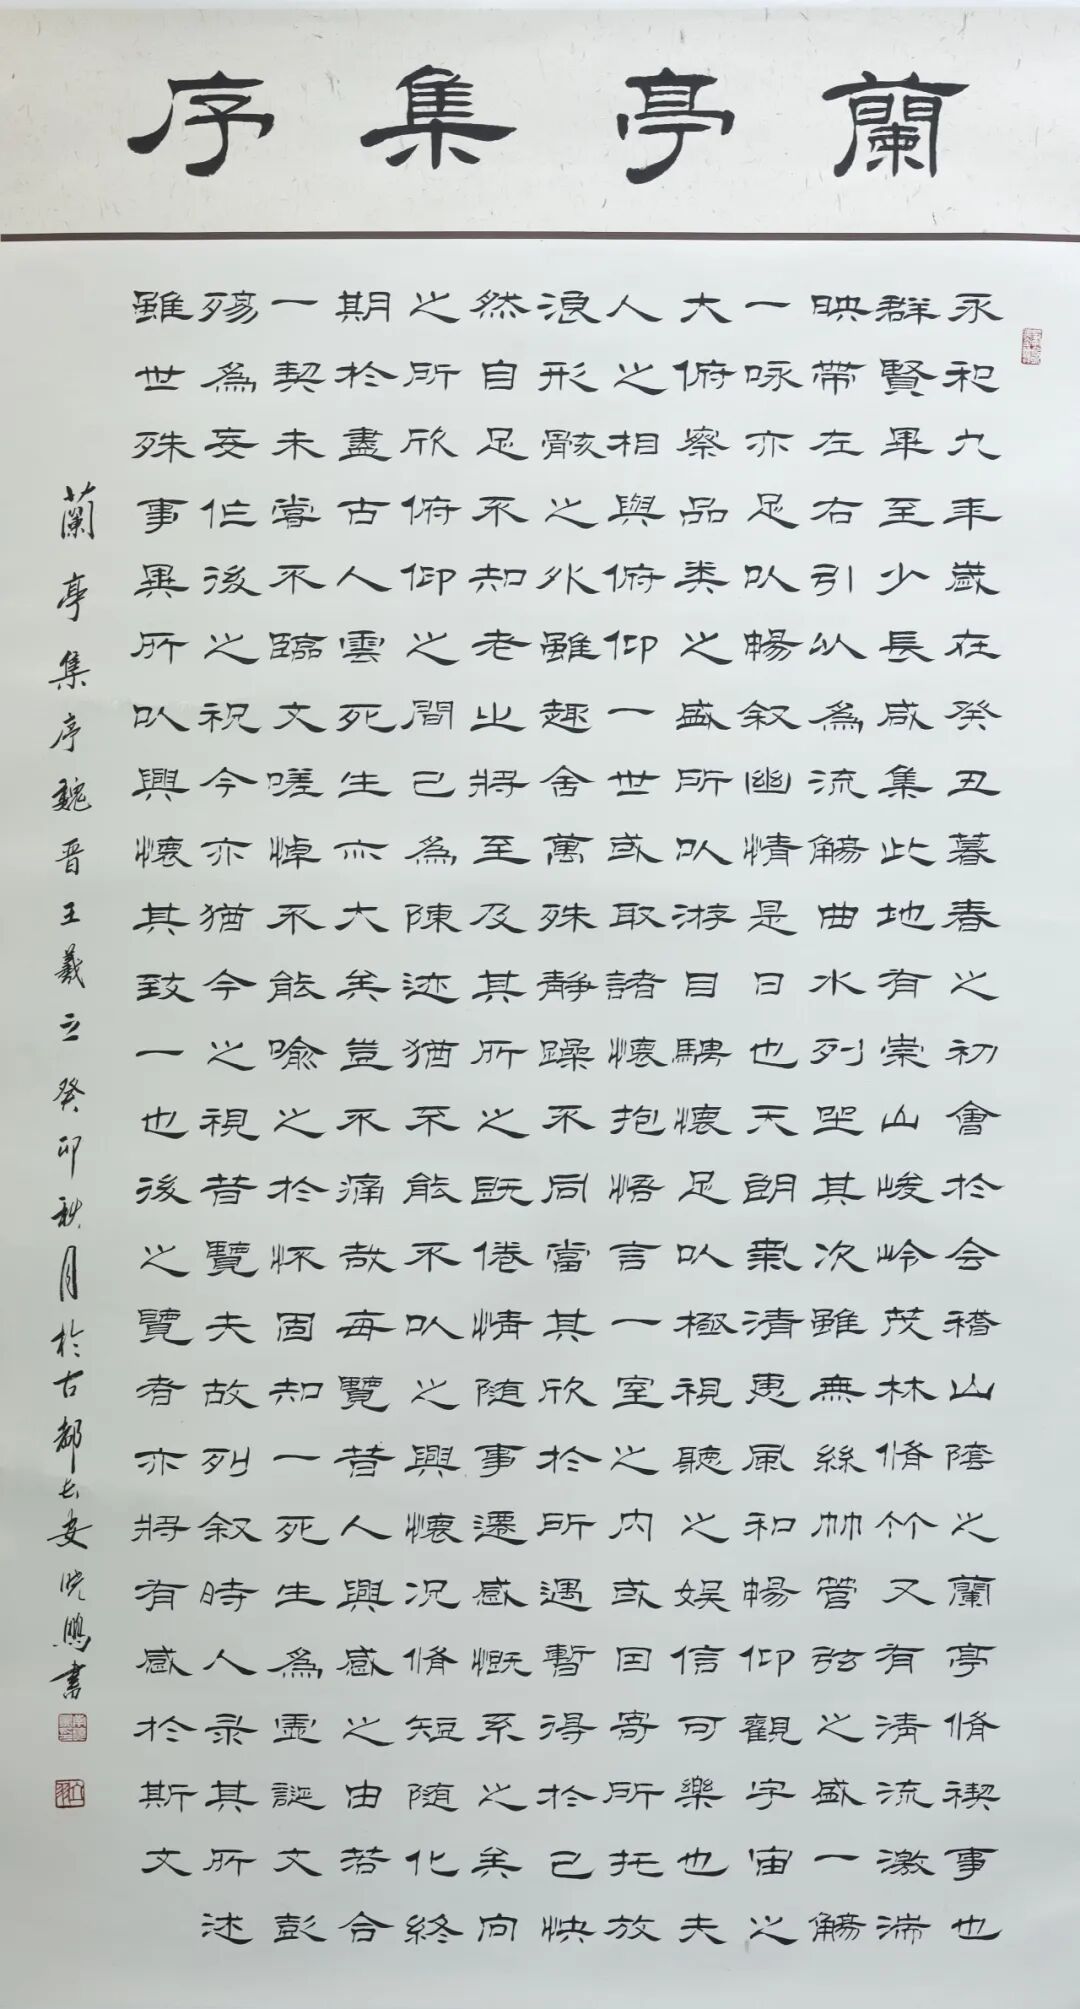 蘭亭集序
永和九年歲在癸丑暮春之初會於会稽山陰之蘭亭脩禊事也
群賢畢至少長咸集此地有崇山峻岭茂林脩竹又有清流激湍
映帶左右引以為流觴曲水列坐其次雖無絲竹管弦之盛一觴
一咏亦足以暢叙幽情是日也天朗氣清惠風和暢仰觀宇宙之
大俯察品类之盛所以游目騁懷足以極視聽之娱信可樂也夫
人之相與俯仰一世或取諸懷抱悟言一室之内或因寄所托放
浪形骸之外雖趣舍萬殊靜躁不同當其欣於所遇暫得於己快
然自足不知老之將至及其所之既倦情随事遷感慨系之矣向
之所欣俯仰之間已為陳迹猶不能不以之興懷况脩短随化終
期於盡古人雲死生亦大矣豈不痛哉每覽昔人興感之由若合
一契未嘗不臨文嗟悼不能喻之於怀固知一死生為虛誕文彭
殤為妄作後之視今亦猶今之視昔覽夫故列叙時人录其所述
雖世殊事異所以興懷其致一也後之覽者亦將有感於斯文
蘭亭集序魏晋王羲之癸卯秋月於古都长安晓鹏書